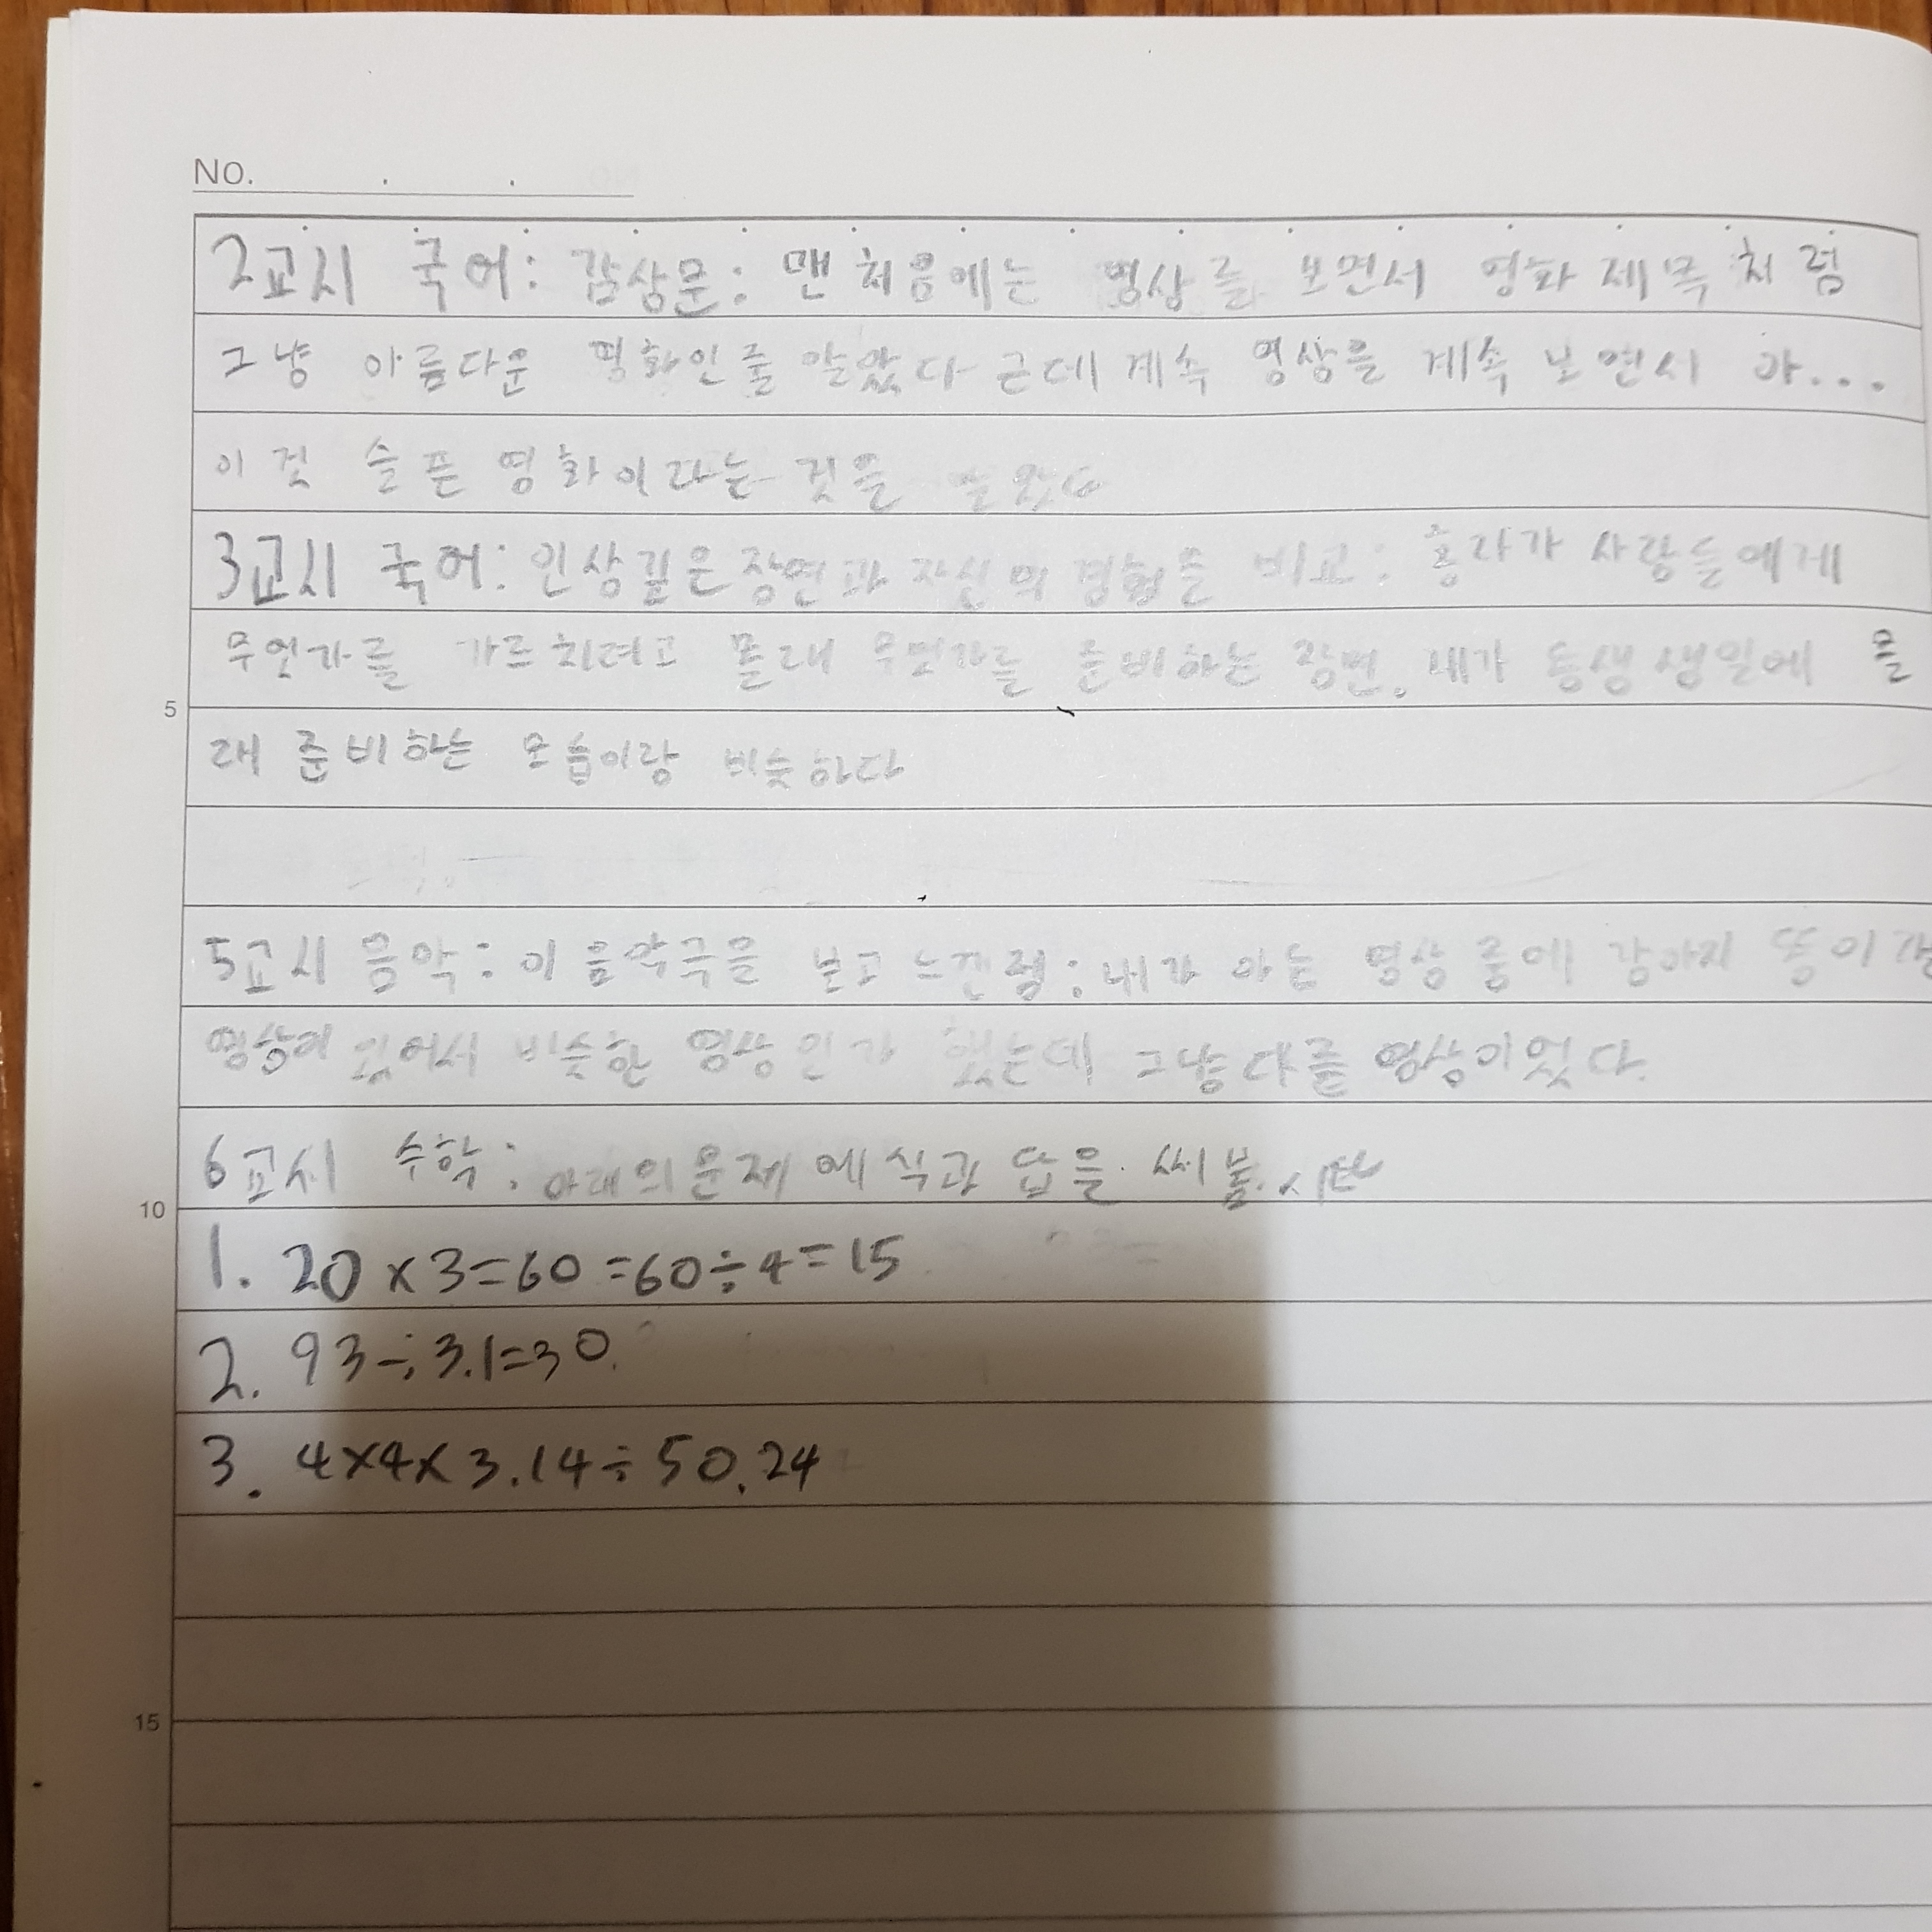 NO.
2교시 국어: 감상문: 맨 처음에는 영상를 보면서 영화 제목 처럼
그냥 아름다운 영화인줄 알았다 근데 계속 영상을 계속 보면서 아...
이것 슬픈 영화이라는 것을
3교시 국어: 인상깊은 장면과 자신의 경험을 비교: 혼자가 사람들에게
무엇가를 가르치려고 몰래 무언가를 준비하는 장면. 내가 동생 생일에 몰
래 준비하는 모습이랑 비슷하다
5교시 음악: 이 음악극을 보고 느낀점: 내가 아는 영상 중에 강아지 똥이랑
영상이 있어서 비슷한 영상인가 했는데 그냥 다른 영상이었다.
5
6교시 수학: 아래의 문제에 식과 답을 써봅시다
10
1. 20×3=60=60÷4=15
2. 93÷3.1=30
3. 4×4×3.14÷50.24
15